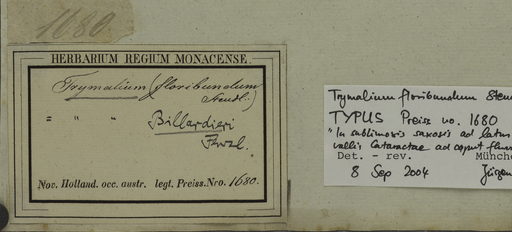 1680
HERBARIUM REGIUM MONACENSE.
Trymalium (floribundum
Steudl.)
" " " Billardieri
Fenzl.
Nov. Holland. occ. austr. legt. Preiss. Nro. 1680.
Trymalium floribundum Steu
TYPUS Preiss no. 1680
"In sublimosis saxosis ad latus
vallis Cataractae ad apput flum
Det. - rev. Münche
8 Sep 2004 Jürgen